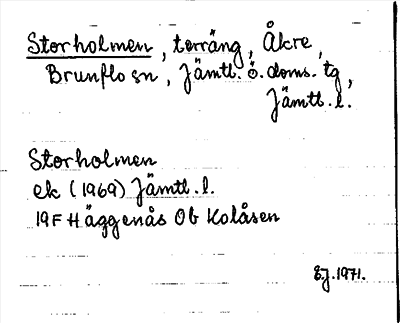 Storholmen, terräng, Åkre,
Brunflo sn, Jämtl. ö. doms. tg,
Jämtl. l.
Storholmen
ek (1969) Jämtl. l.
19F Häggenås Ob Kolåsen
EJ. 1971.